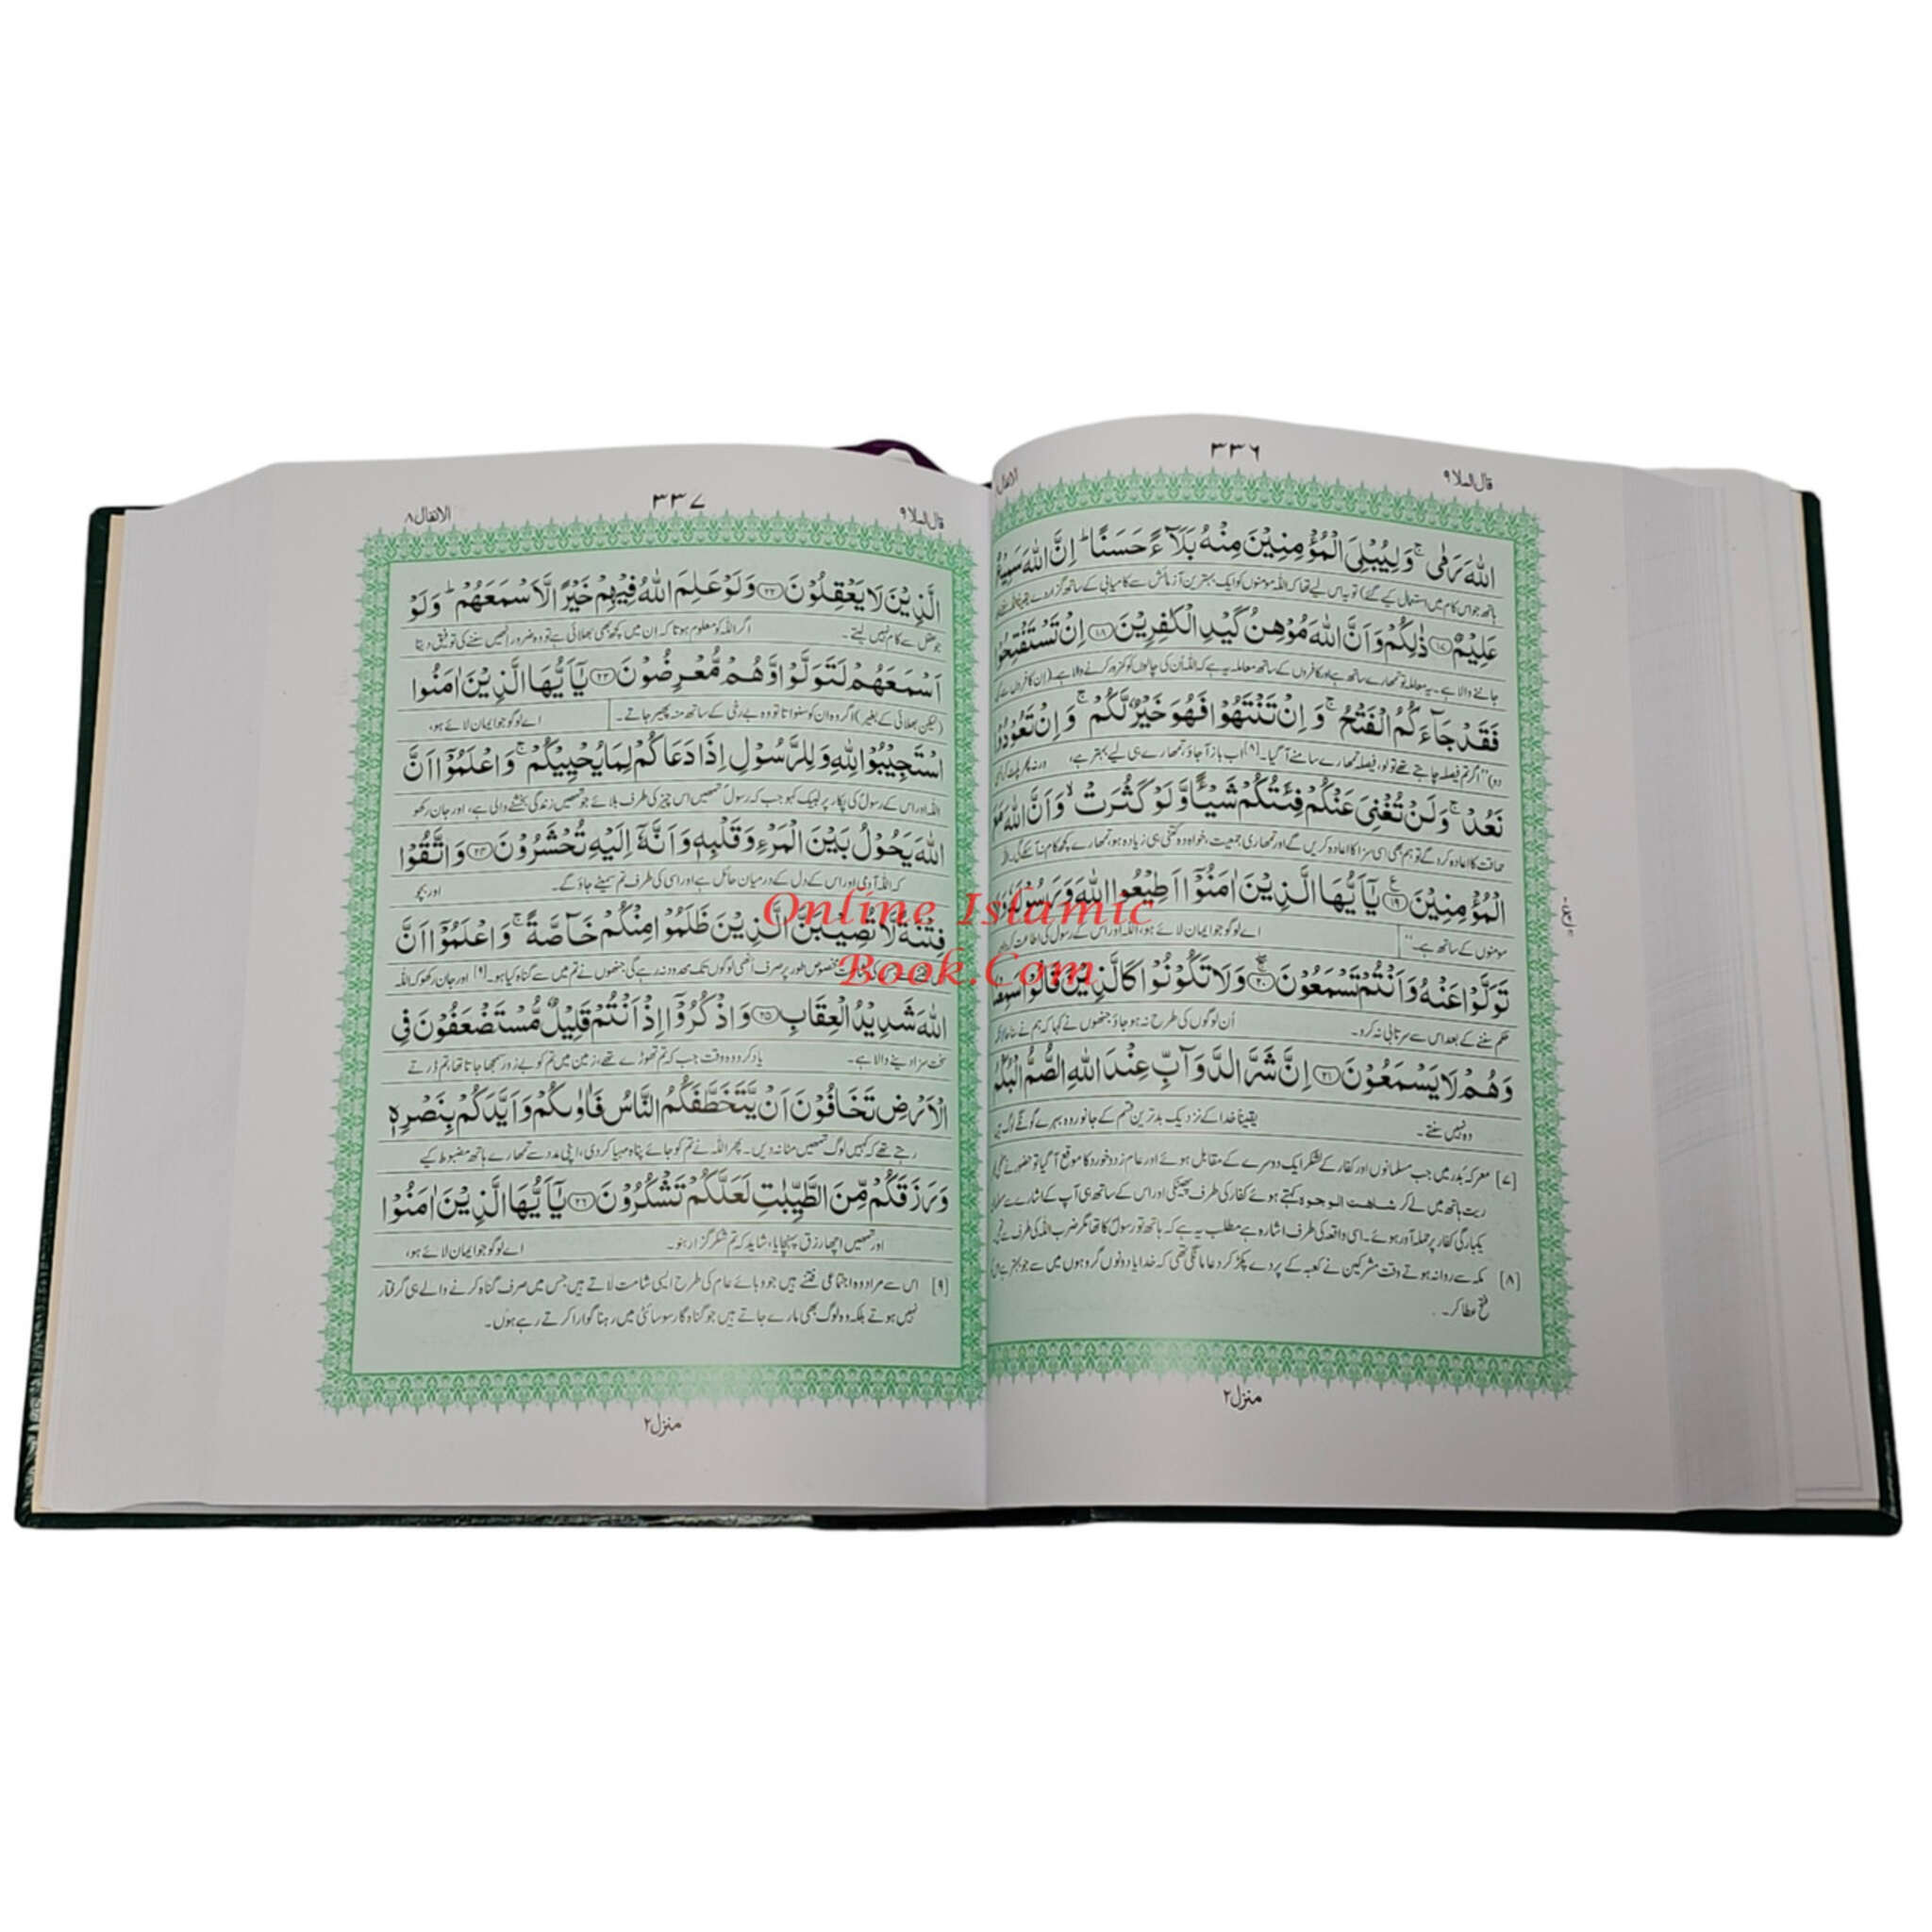 ٣٣٦
قال الملا ٩
الله رَمٰى ۚ وَلِيُبْلِيَ الْمُؤْمِنِيْنَ مِنْهُ بَلَآءً حَسَنًا ؕ اِنَّ اللهَ سَمِيْعٌ
عَلِيْمٌ ﴿۱۷﴾ ذٰلِكُمْ وَاَنَّ اللهَ مُوْهِنُ كَيْدِ الْكٰفِرِيْنَ ﴿۱۸﴾ اِنْ تَسْتَفْتِحُوْا
فَقَدْ جَآءَكُمُ الْفَتْحُ ۚ وَاِنْ تَنْتَهُوْا فَهُوَ خَيْرٌ لَّكُمْ ۚ وَاِنْ تَعُوْدُوْا
دو) "اگر تم فیصلہ چاہتے تھے تو لو، فیصلہ تمھارے سامنے آ گیا۔[۸] اب باز آ جاؤ، تمھارے ہی لیے بہتر ہے،
نَعُدْ ۚ وَلَنْ تُغْنِيَ عَنْكُمْ فِئَتُكُمْ شَيْـًٔا وَّلَوْ كَثُرَتْ ۙ وَاَنَّ اللهَ مَعَ
حماقت کا اعادہ کرو گے تو ہم بھی اسی سزا کا اعادہ کریں گے اور تمھاری جمعیت، خواہ وہ کتنی ہی زیادہ ہو، تمھارے کچھ کام نہ آ سکے گی۔
الْمُؤْمِنِيْنَ ﴿۱۹﴾ يٰٓاَيُّهَا الَّذِيْنَ اٰمَنُوْٓا اَطِيْعُوا اللهَ وَرَسُوْلَهٗ
مومنوں کے ساتھ ہے۔" اے لوگو جو ایمان لائے ہو، اللہ اور اس کے رسول کی اطاعت کرو
تَوَلَّوْا عَنْهُ وَاَنْتُمْ تَسْمَعُوْنَ ﴿۲۰﴾ وَلَا تَكُوْنُوْا كَالَّذِيْنَ قَالُوْا سَمِعْنَا
حکم سننے کے بعد اس سے سرتابی نہ کرو۔ اُن لوگوں کی طرح نہ ہو جاؤ جنھوں نے کہا کہ ہم نے سنا
وَهُمْ لَا يَسْمَعُوْنَ ﴿۲۱﴾ اِنَّ شَرَّ الدَّوَآبِّ عِنْدَ اللهِ الصُّمُّ الْبُكْمُ
وہ نہیں سنتے۔ یقیناً خدا کے نزدیک بدترین قسم کے جانور وہ بہرے گونگے لوگ ہیں
[۷] معرکہ بدر میں جب مسلمانوں اور کفار کے لشکر ایک دوسرے کے مقابل ہوئے اور عام زد و خورد کا موقع آ گیا تو حضور نے
ریت ہاتھ میں لے کر شاھت الوجوہ کہتے ہوئے کفار کی طرف پھینکی اور اس کے ساتھ ہی آپ کے اشارے سے
یکبارگی کفار پر حملہ آور ہوئے۔ اسی واقعہ کی طرف اشارہ ہے مطلب یہ ہے کہ ہاتھ تو رسول کا تھا مگر ضرب اللہ کی طرف سے تھی
[۸] مکہ سے روانہ ہوتے وقت مشرکین نے کعبہ کے پردے پکڑ کر دعا مانگی تھی کہ خدایا دونوں گروہوں میں سے جو بہتر ہے
فتح عطا کر۔
منزل ٢
٣٣٧
قال الملا ٩
الانفال ٨
الَّذِيْنَ لَا يَعْقِلُوْنَ ﴿۲۲﴾ وَلَوْ عَلِمَ اللهُ فِيْهِمْ خَيْرًا لَّاَسْمَعَهُمْ ؕ وَلَوْ
جو عقل سے کام نہیں لیتے۔ اگر اللہ کو معلوم ہوتا کہ ان میں کچھ بھی بھلائی ہے تو وہ ضرور انھیں سننے کی توفیق دیتا
اَسْمَعَهُمْ لَتَوَلَّوْا وَّهُمْ مُّعْرِضُوْنَ ﴿۲۳﴾ يٰٓاَيُّهَا الَّذِيْنَ اٰمَنُوا
(لیکن بھلائی کے بغیر) اگر وہ ان کو سنواتا تو وہ بے رخی کے ساتھ منہ پھیر جاتے۔ اے لوگو جو ایمان لائے ہو،
اسْتَجِيْبُوْا لِلهِ وَلِلرَّسُوْلِ اِذَا دَعَاكُمْ لِمَا يُحْيِيْكُمْ ۚ وَاعْلَمُوْٓا اَنَّ
اللہ اور اس کے رسول کی پکار پر لبیک کہو جب کہ رسول تمھیں اس چیز کی طرف بلائے جو تمھیں زندگی بخشنے والی ہے، اور جان رکھو
اللهَ يَحُوْلُ بَيْنَ الْمَرْءِ وَقَلْبِهٖ وَاَنَّهٗٓ اِلَيْهِ تُحْشَرُوْنَ ﴿۲۴﴾ وَاتَّقُوْا
کہ اللہ آدمی اور اس کے دل کے درمیان حائل ہے اور اسی کی طرف تم سمیٹے جاؤ گے۔ اور بچو
فِتْنَةً لَّا تُصِيْبَنَّ الَّذِيْنَ ظَلَمُوْا مِنْكُمْ خَآصَّةً ۚ وَاعْلَمُوْٓا اَنَّ
مخصوص طور پر صرف انھی لوگوں تک محدود نہ رہے گی جنھوں نے تم میں سے گناہ کیا ہو۔[۹] اور جان رکھو کہ اللہ
اللهَ شَدِيْدُ الْعِقَابِ ﴿۲۵﴾ وَاذْكُرُوْٓا اِذْ اَنْتُمْ قَلِيْلٌ مُّسْتَضْعَفُوْنَ فِي
سخت سزا دینے والا ہے۔ یاد کرو وہ وقت جب کہ تم تھوڑے تھے، زمین میں تم کو بے زور سمجھا جاتا تھا، تم ڈرتے
الْاَرْضِ تَخَافُوْنَ اَنْ يَّتَخَطَّفَكُمُ النَّاسُ فَاٰوٰىكُمْ وَاَيَّدَكُمْ بِنَصْرِهٖ
رہتے تھے کہ کہیں لوگ تمھیں مٹا نہ دیں۔ پھر اللہ نے تم کو جائے پناہ مہیا کر دی، اپنی مدد سے تمھارے ہاتھ مضبوط کیے
وَرَزَقَكُمْ مِّنَ الطَّيِّبٰتِ لَعَلَّكُمْ تَشْكُرُوْنَ ﴿۲۶﴾ يٰٓاَيُّهَا الَّذِيْنَ اٰمَنُوْا
اور تمھیں اچھا رزق پہنچایا، شاید کہ تم شکر گزار ہو۔ اے لوگو جو ایمان لائے ہو،
[۹] اس سے مراد وہ اجتماعی فتنے ہیں جو وبائے عام کی طرح ایسی شامت لاتے ہیں جس میں صرف گناہ کرنے والے ہی گرفتار
نہیں ہوتے بلکہ وہ لوگ بھی مارے جاتے ہیں جو گناہ گار سوسائٹی میں رہنا گوارا کرتے رہے ہوں۔
منزل ٢
Online Islamic
Book.Com